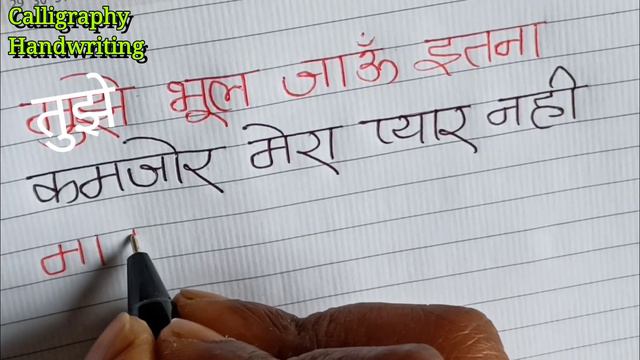 Calligraphy
Handwriting
तुझे भूल जाऊँ इतना
कमजोर मेरा प्यार नही
मा